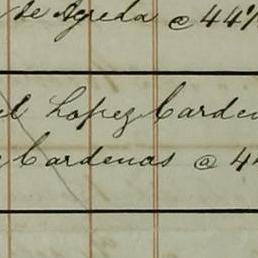 de Agreda @ 44%
el Lopez Carden
Cardenas @ 44